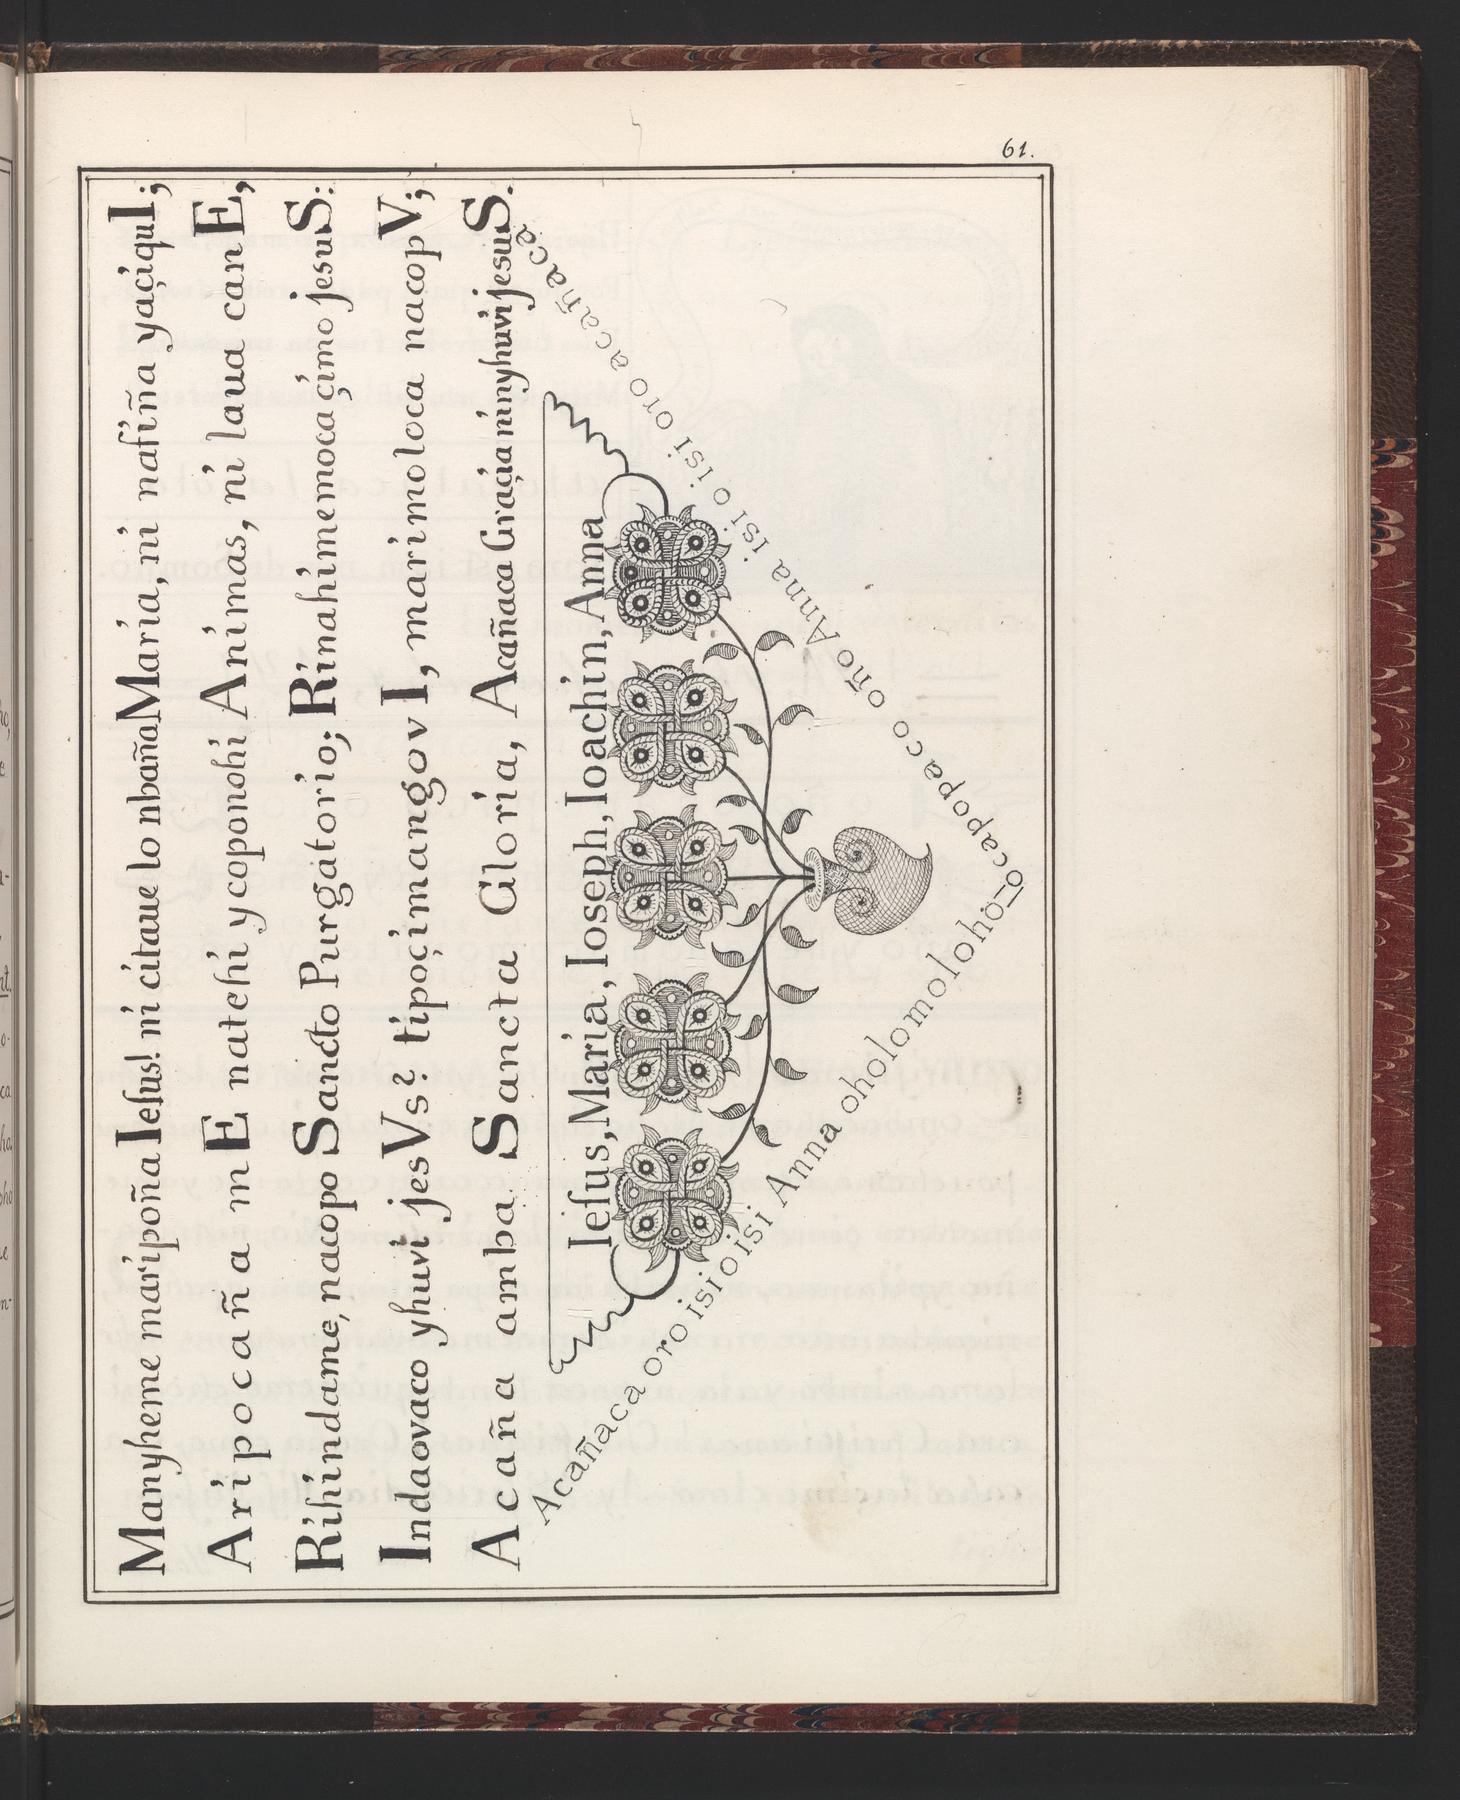 61.
Manyheme maripoña Iesus! ni citaue lo nbaña Maria, ni nasiña yaçiquI;
Aripocaña mE natehi ycoponohi Animas, ni laua canE,
Rihindame, naaopo Sancto Purgatorio; Rinahimemocaçimo jesuS:
Indaovaco yhuvi jesVs? tipoçimangov I, marimoloca naaop V;
Acaña amba Sancta Gloria, Acañaca Graçia minyhuvijesuS.
Iesus, Maria, Ioseph, Ioachin, Anna
Acañaca oro isioisi Anna oholomoloho
ocapopaco oño Anna isi oisi oro acañaca